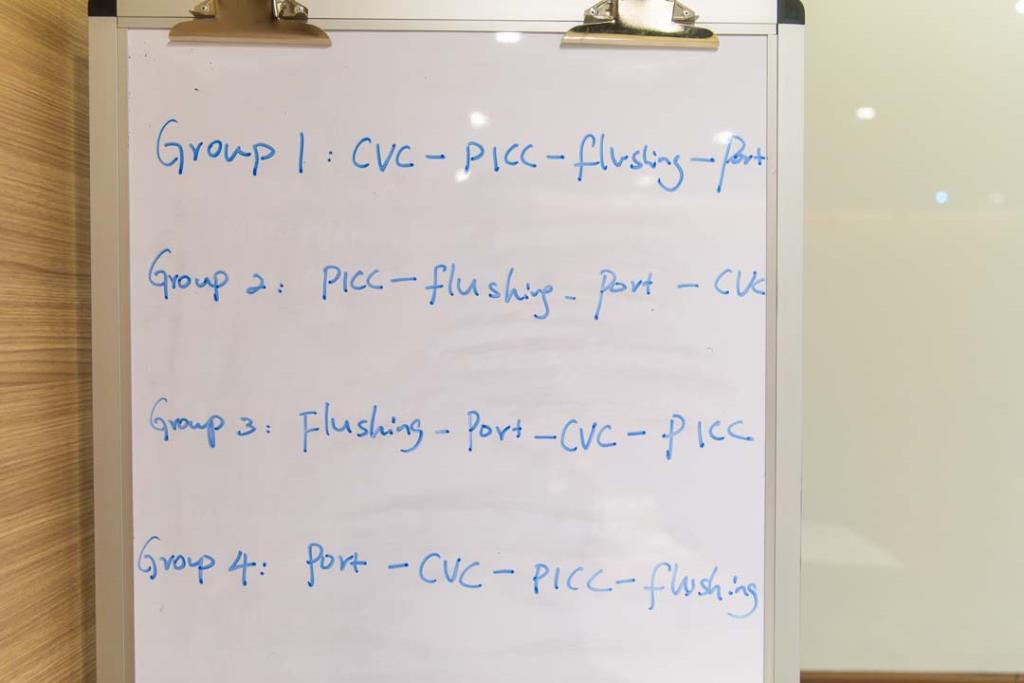 Group 1: CVC - PICC - flushing - port
Group 2: PICC - flushing - port - CVC
Group 3: Flushing - Port - CVC - PICC
Group 4: Port - CVC - PICC - flushing